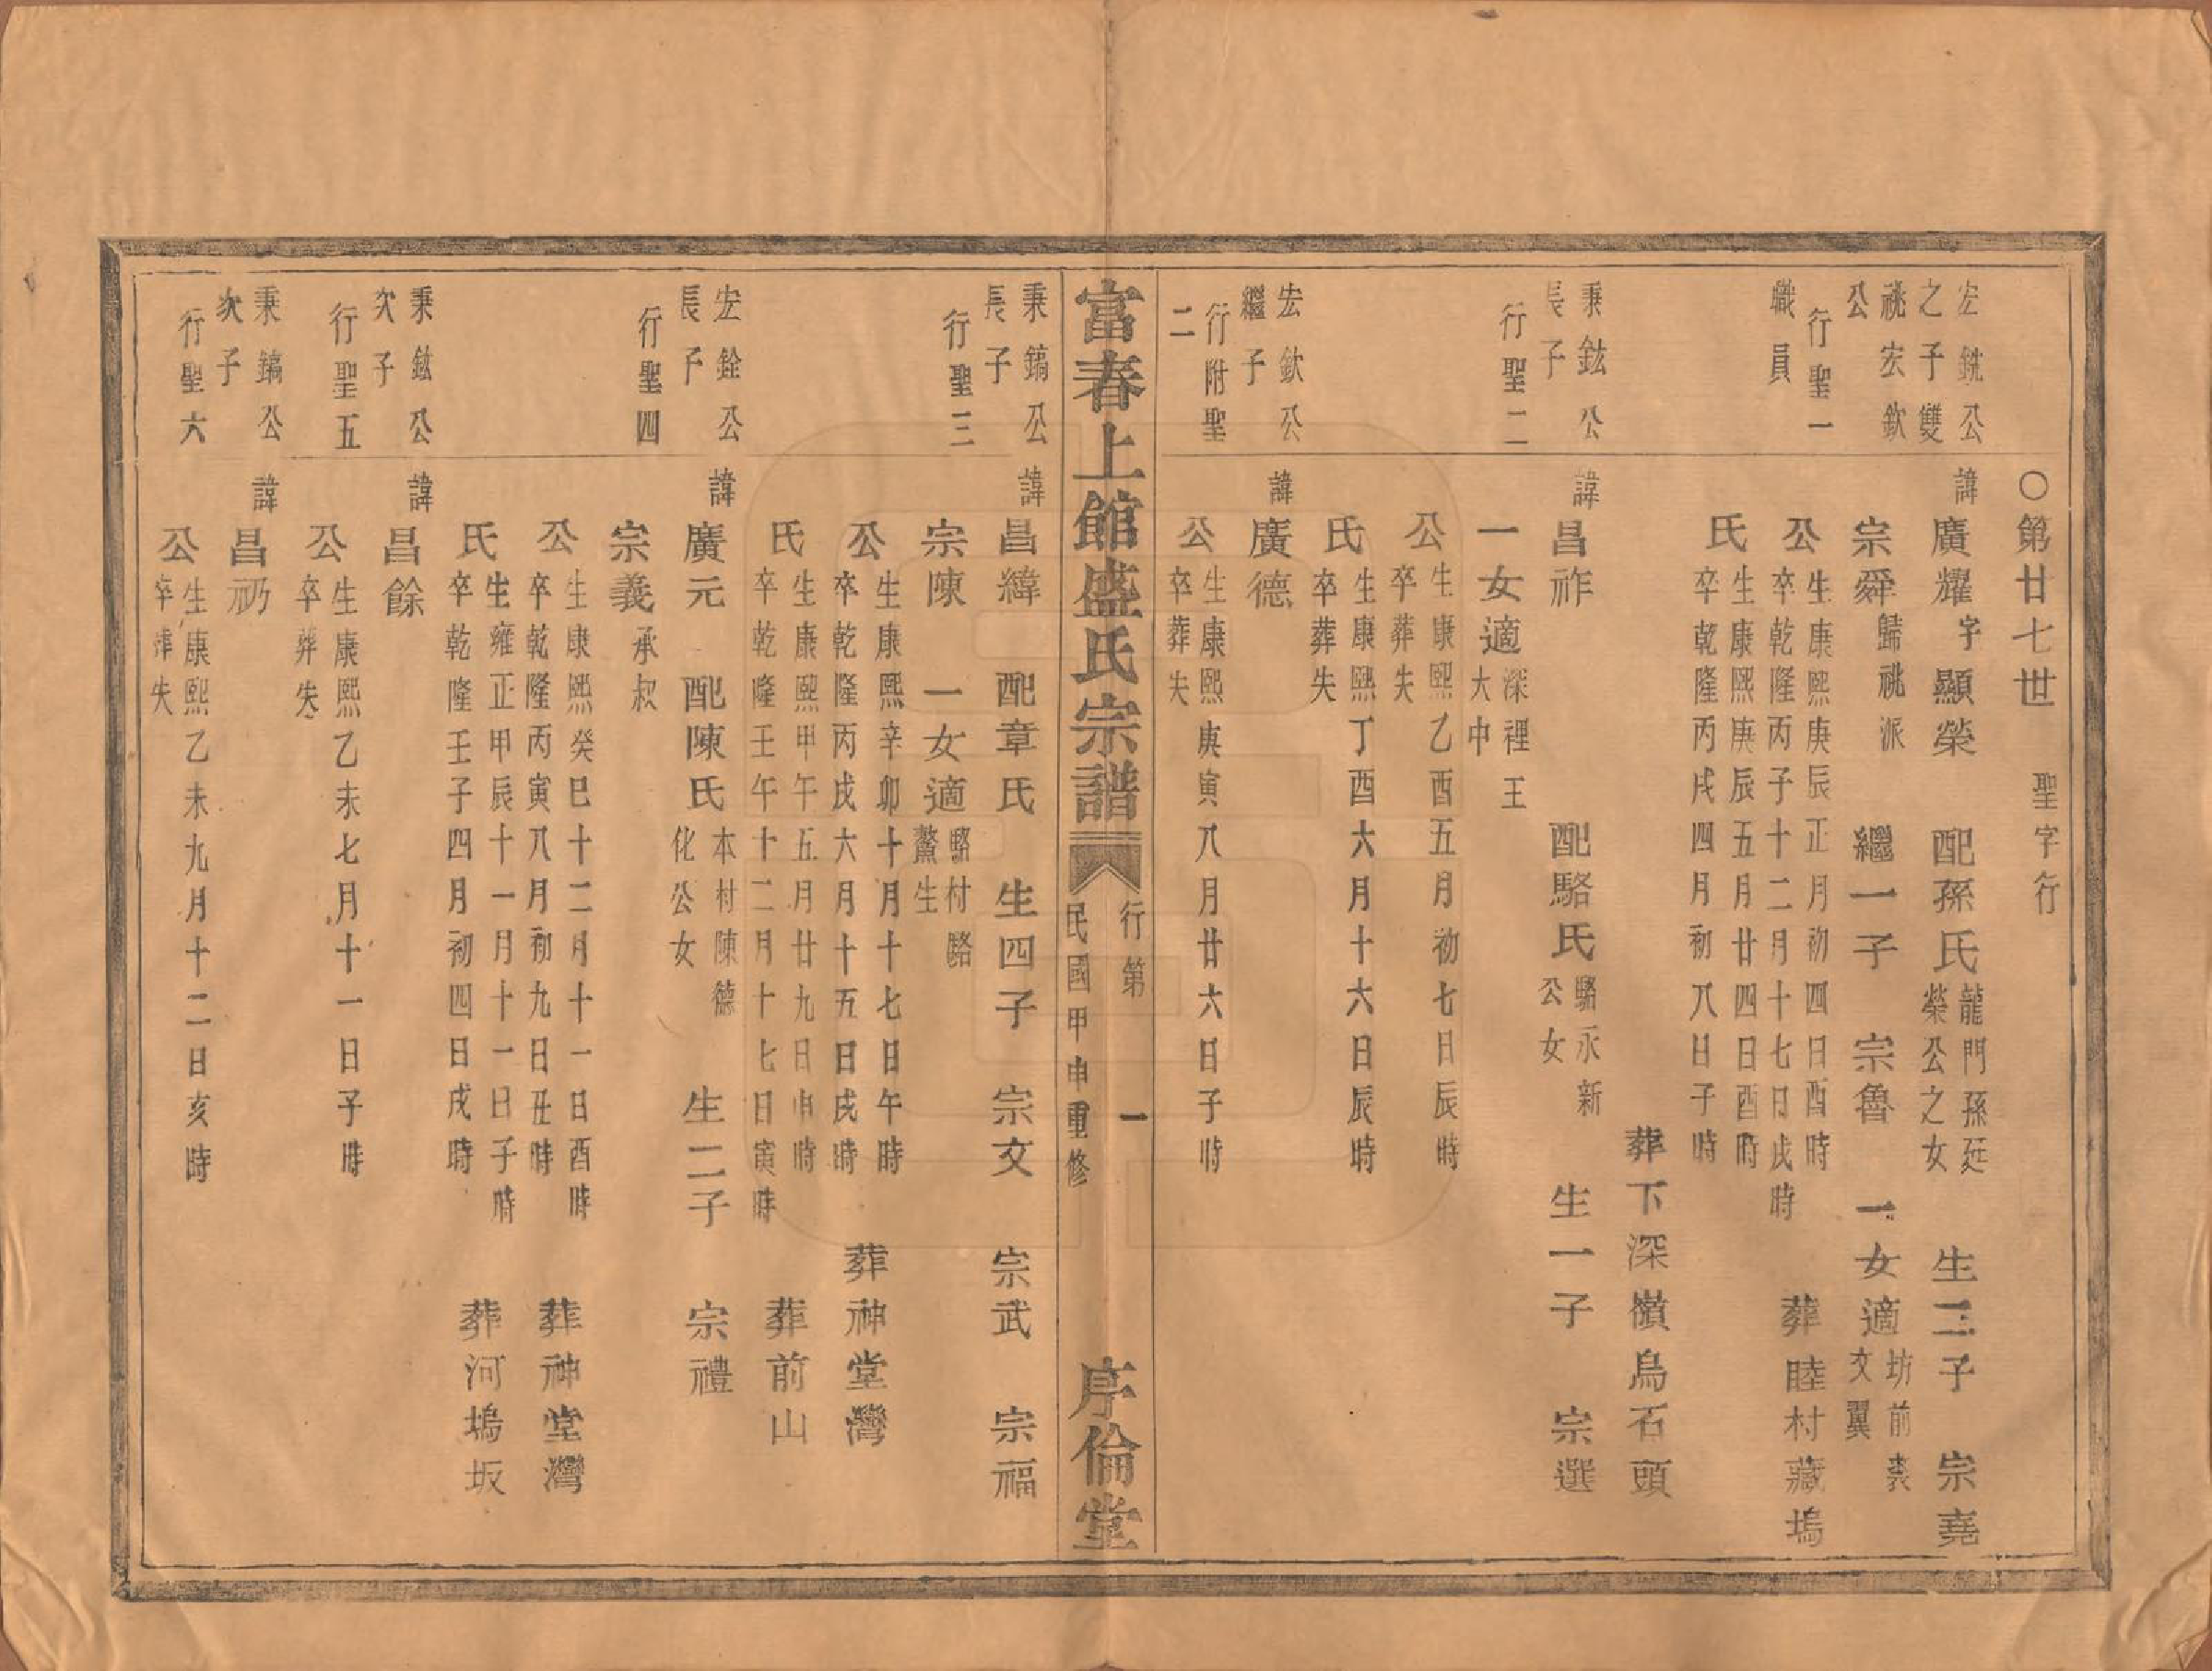 ○第廿七世　聖字行
宏銑公
之子雙
祧宏欽
公
行聖一
職員
諱
廣耀字顯榮　配孫氏龍門孫廷
榮公之女　生二子　宗堯
宗舜歸祧派　繼一子　宗魯　一女適坊前裘
文翼
公生康熙庚辰正月初四日酉時
卒乾隆丙子十二月十七日戌時　葬睦村藏塢
氏生康熙庚辰五月廿四日酉時
卒乾隆丙戌四月初八日子時
葬下深嶺烏石頭
秉鉉公
長子
行聖二
諱
昌祚　配駱氏駱永新
公女　生一子　宗選
一女適深裡王
大中
公生康熙乙酉五月初七日辰時
卒葬失
氏生康熙丁酉六月十六日辰時
卒葬失
宏欽公
繼子
行附聖
二
諱
廣德
公生康熙庚寅八月廿六日子時
卒葬失
富春上館盛氏宗譜　行第　一
民國甲申重修　序倫堂
秉鎬公
長子
行聖三
諱
昌緯　配章氏　生四子　宗文　宗武　宗福
宗陳　一女適駱村駱
鰲生
公生康熙辛卯十月十七日午時
卒乾隆丙戌六月十五日戌時　葬神堂灣
氏生康熙甲午五月廿九日申時
卒乾隆壬午十二月十七日寅時　葬前山
宏銓公
長子
行聖四
諱
廣元　配陳氏本村陳德
化公女　生二子　宗禮
宗義承叔
公生康熙癸巳十二月十一日酉時
卒乾隆丙寅八月初九日丑時　葬神堂灣
氏生雍正甲辰十一月十一日子時
卒乾隆壬子四月初四日戌時　葬河塢坂
秉鉉公
次子
行聖五
諱
昌餘
公生康熙乙未七月十一日子時
卒葬失
秉鎬公
次子
行聖六
諱
昌礽
公生康熙乙未九月十二日亥時
卒葬失